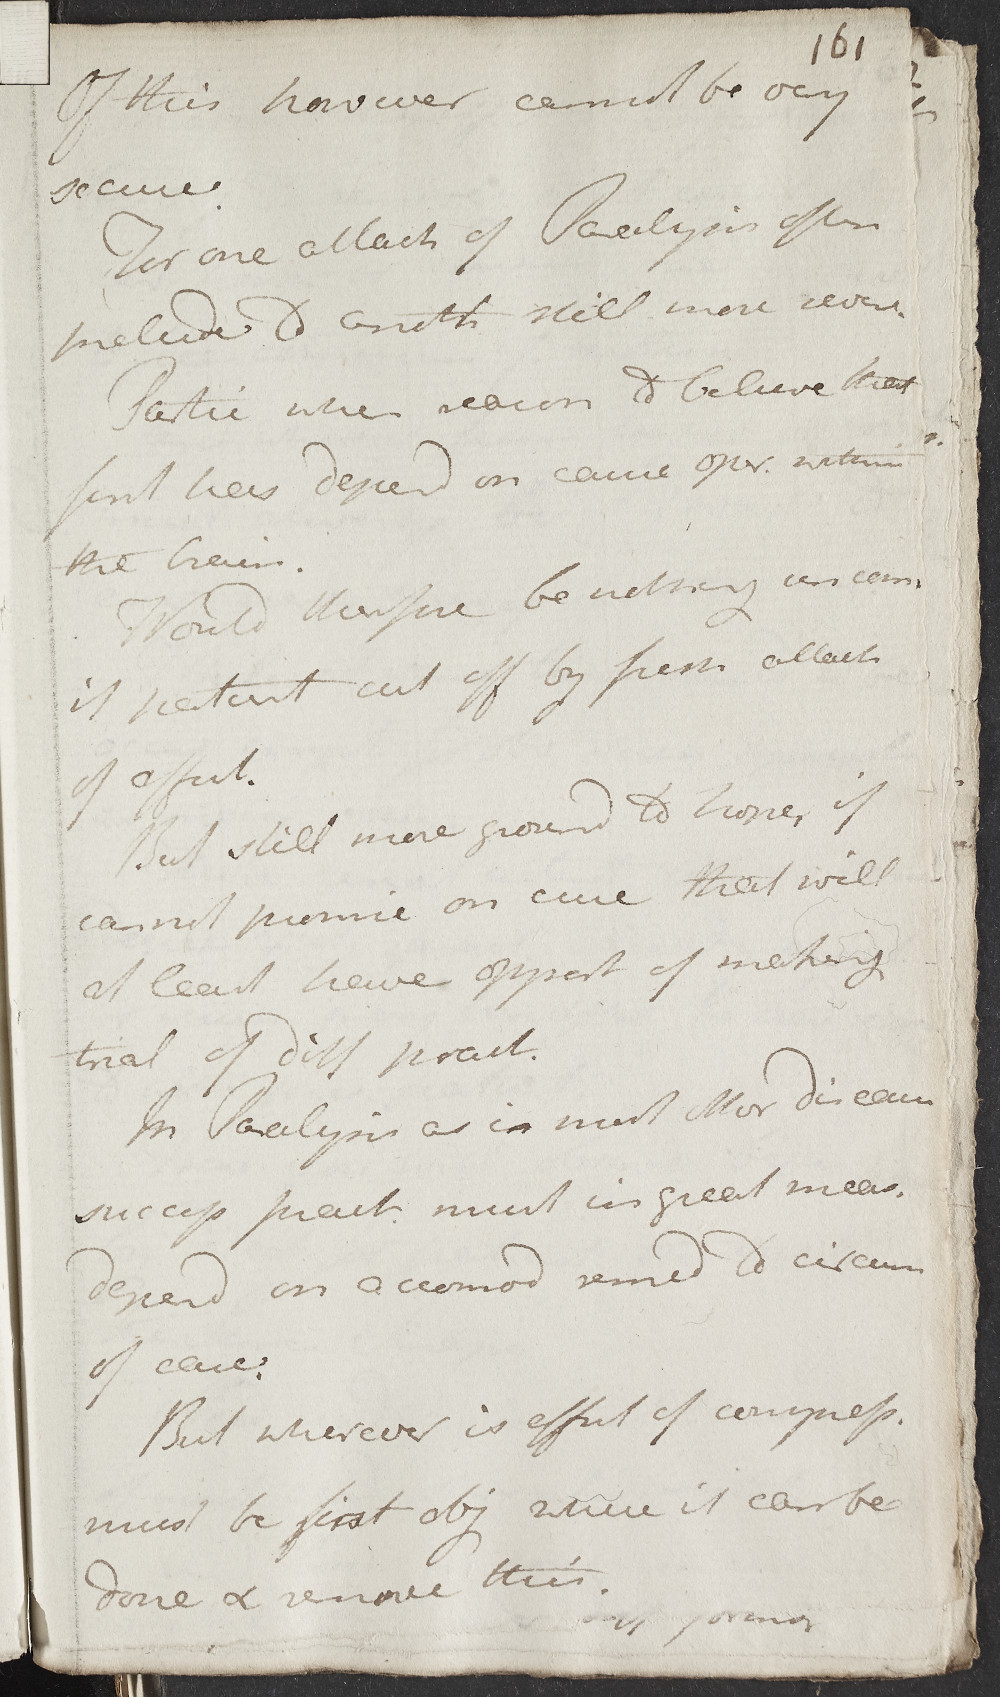 161
Of this however cannot be very
secure.
For one attack of Paralysis often
prelude to anoth still more severe.
Partic when reason to believe that
first has depend on cause oper. within
the brain.
Would therfore be nothing uncom.
if patient cut off by fresh attack
of affect.
But still more ground to hope, if
cannot promise on cure that will
at least have opport of making
trial of diff pract.
In Paralysis as in most other diseases
success pract. must in great meas.
depend on accomod remed to circum
of case.
But wherever is effect of compress.
must be first obj where it can be
done to remove this.